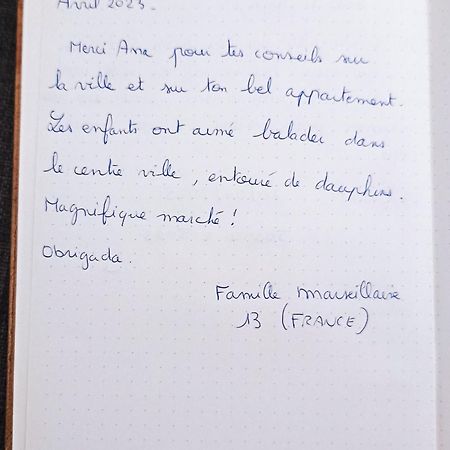 Avril 2023.
Merci Ana pour tes conseils sur
la ville et sur ton bel appartement.
Les enfants ont aimé balader dans
le centre ville, entouré de dauphins.
Magnifique marché !
Obrigada.
Famille Marseillaise
13 (FRANCE)